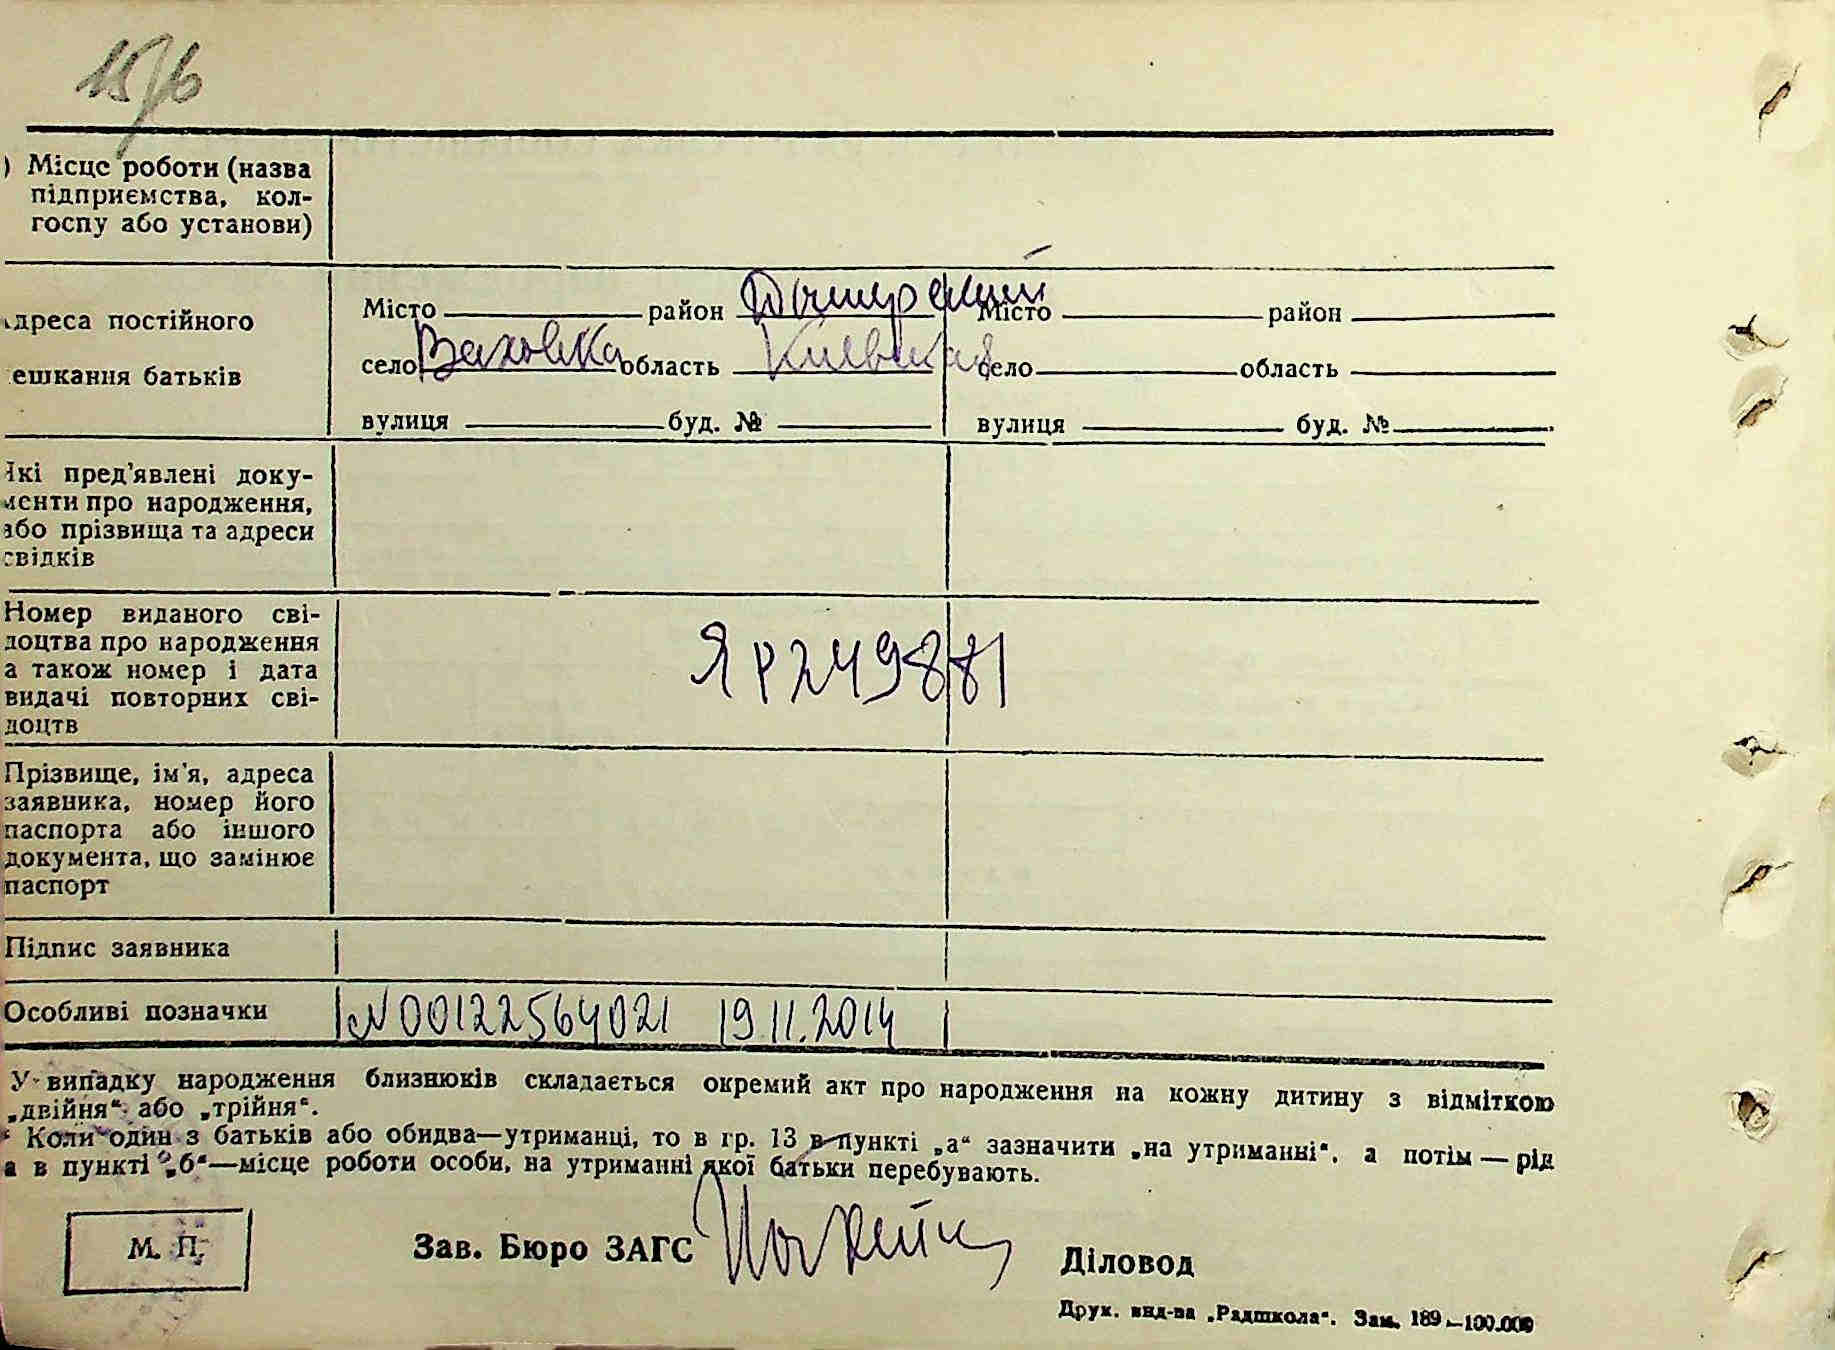 15/6
) Місце роботи (назва
підприємства, кол-
госпу або установи)
дреса постійного
ешкання батьків
Місто район Дымерский Місто район
село Ваховка область Киевская село область
вулиця буд. № вулиця буд. №
Які пред'явлені доку-
менти про народження,
або прізвища та адреси
свідків
Номер виданого сві-
доцтва про народження
а також номер і дата
видачі повторних сві-
доцтв
ЯР 249881
Прізвище, ім'я, адреса
заявника, номер його
паспорта або іншого
документа, що замінює
паспорт
Підпис заявника
Особливі позначки N00122564021 19.11.2014
У випадку народження близнюків складається окремий акт про народження на кожну дитину з відміткою
„двійня“ або „трійня“.
Коли один з батьків або обидва—утриманці, то в гр. 13 в пункті „а“ зазначити „на утриманні“, а потім — рід
а в пункті „б“—місце роботи особи, на утриманні якої батьки перебувають.
М. П. Зав. Бюро ЗАГС Діловод
Друк. вид-ва „Радшкола“. Зам. 189—100.000